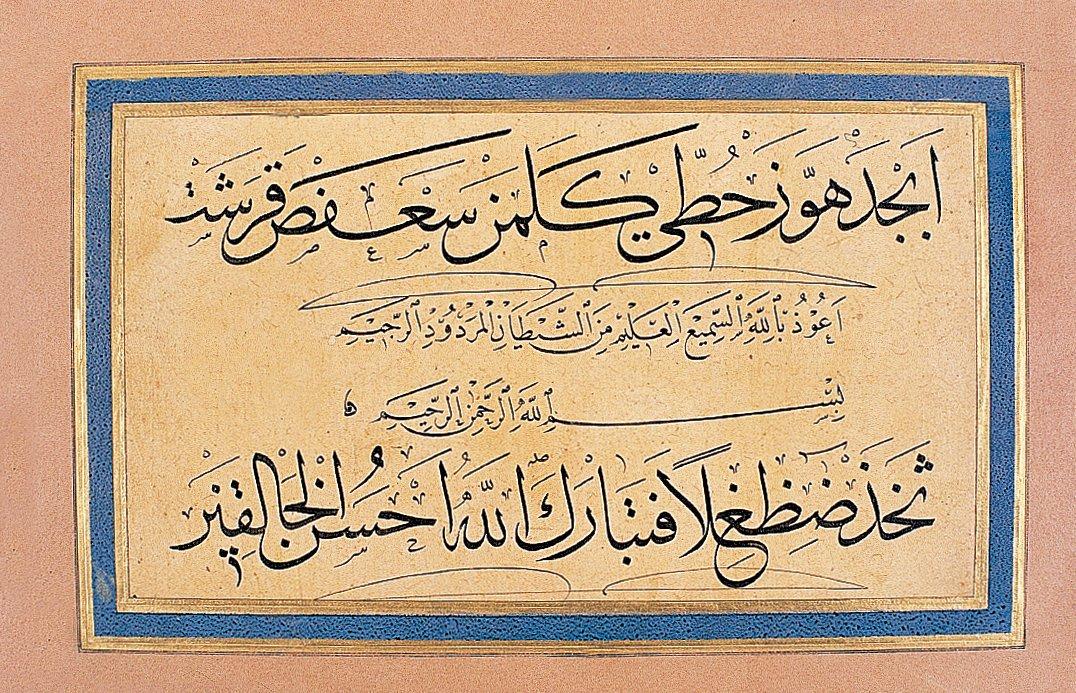 اَبْجَدْ هَوَّزْ حُطِّي كَلَمَنْ سَعْفَصْ قَرَشَتْ
اَعُوْذُ بِاللّٰهِ السَّمِيْعِ الْعَلِيْمِ مِنَ الشَّيْطَانِ الْمَرْدُوْدِ الرَّجِيْمِ
بِسْمِ اللّٰهِ الرَّحْمٰنِ الرَّحِيْمِ
ثَخَذْ ضَظِغْلًا فَتَبَارَكَ اللّٰهُ اَحْسَنُ الْخَالِقِيْنَ